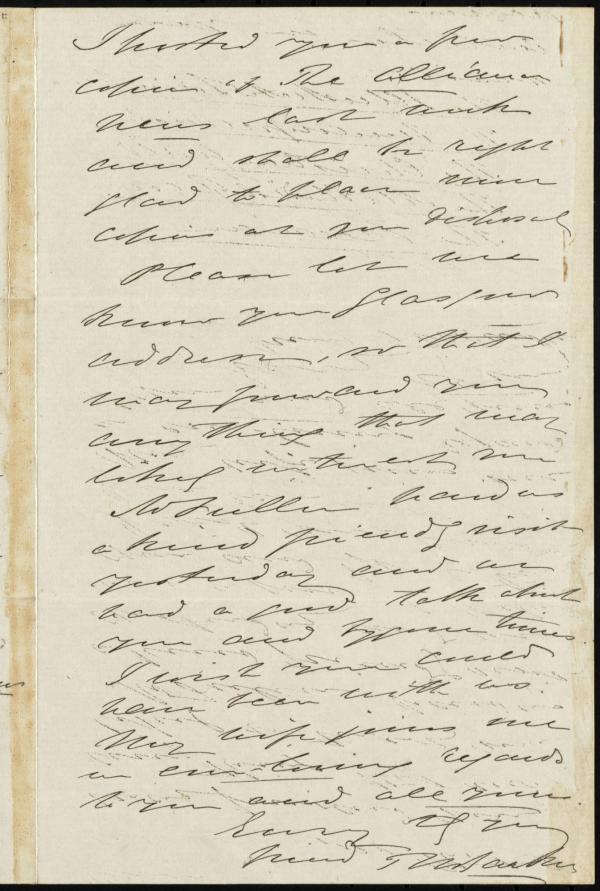 I posted you a few
copies of The Alliance
News last week
and shall be right
glad to place more
copies at your disposal
Please let me
know your Glasgow
address, so that I
may forward you
any thing that may
likely interest you
paid us
a kind friendly visit
yesterday and we
had a good talk about
you and bygone times
I wish you could
have been with us.
My wife joins me
in our loving regards
to you and all yours
friend